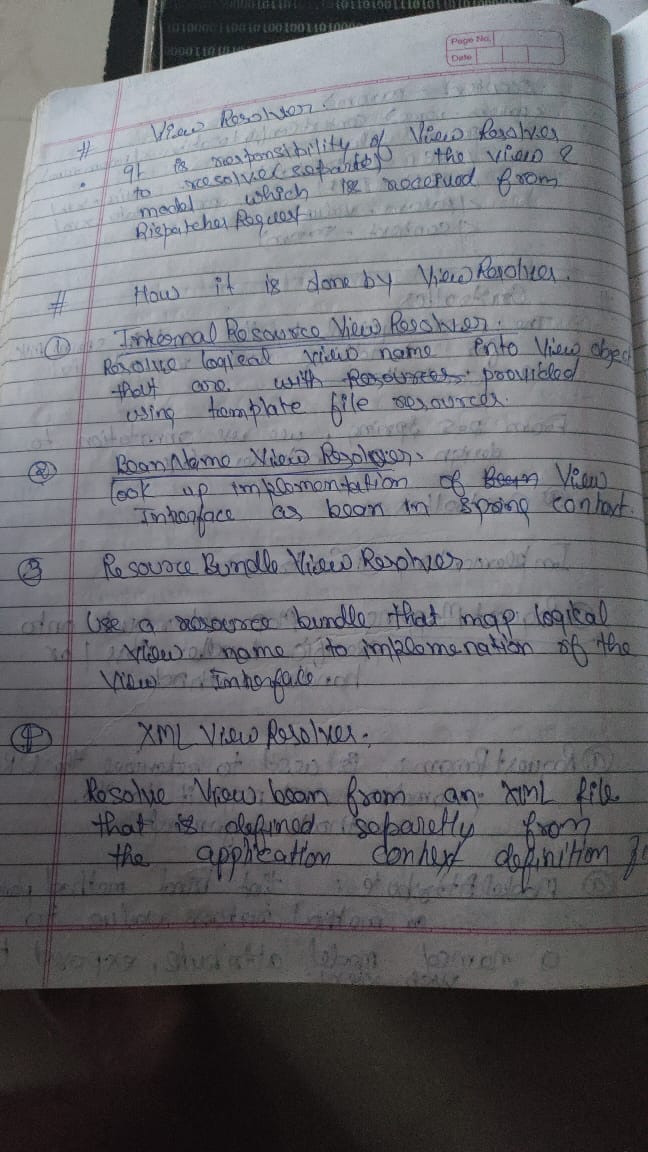 Page No.
Date
# View Resolver.
• It is responsibility of View Resolver
to resolve (separate) the view &
model which is received from
Dispatcher Request
# How it is done by View Resolver.
① Internal Resource View Resolver.
Resolve logical view name into View object
that are with Resources. provided
using template file resources.
② Bean Name View Resolver.
look up implementation of Bean View
Interface as bean in spring context.
③ Resource Bundle View Resolver
Use a resource bundle that map logical
view name to implemenation of the
View Interface.
④ XML View Resolver.
Resolve View bean from an XML file
that is defined separetly from
the application context definition